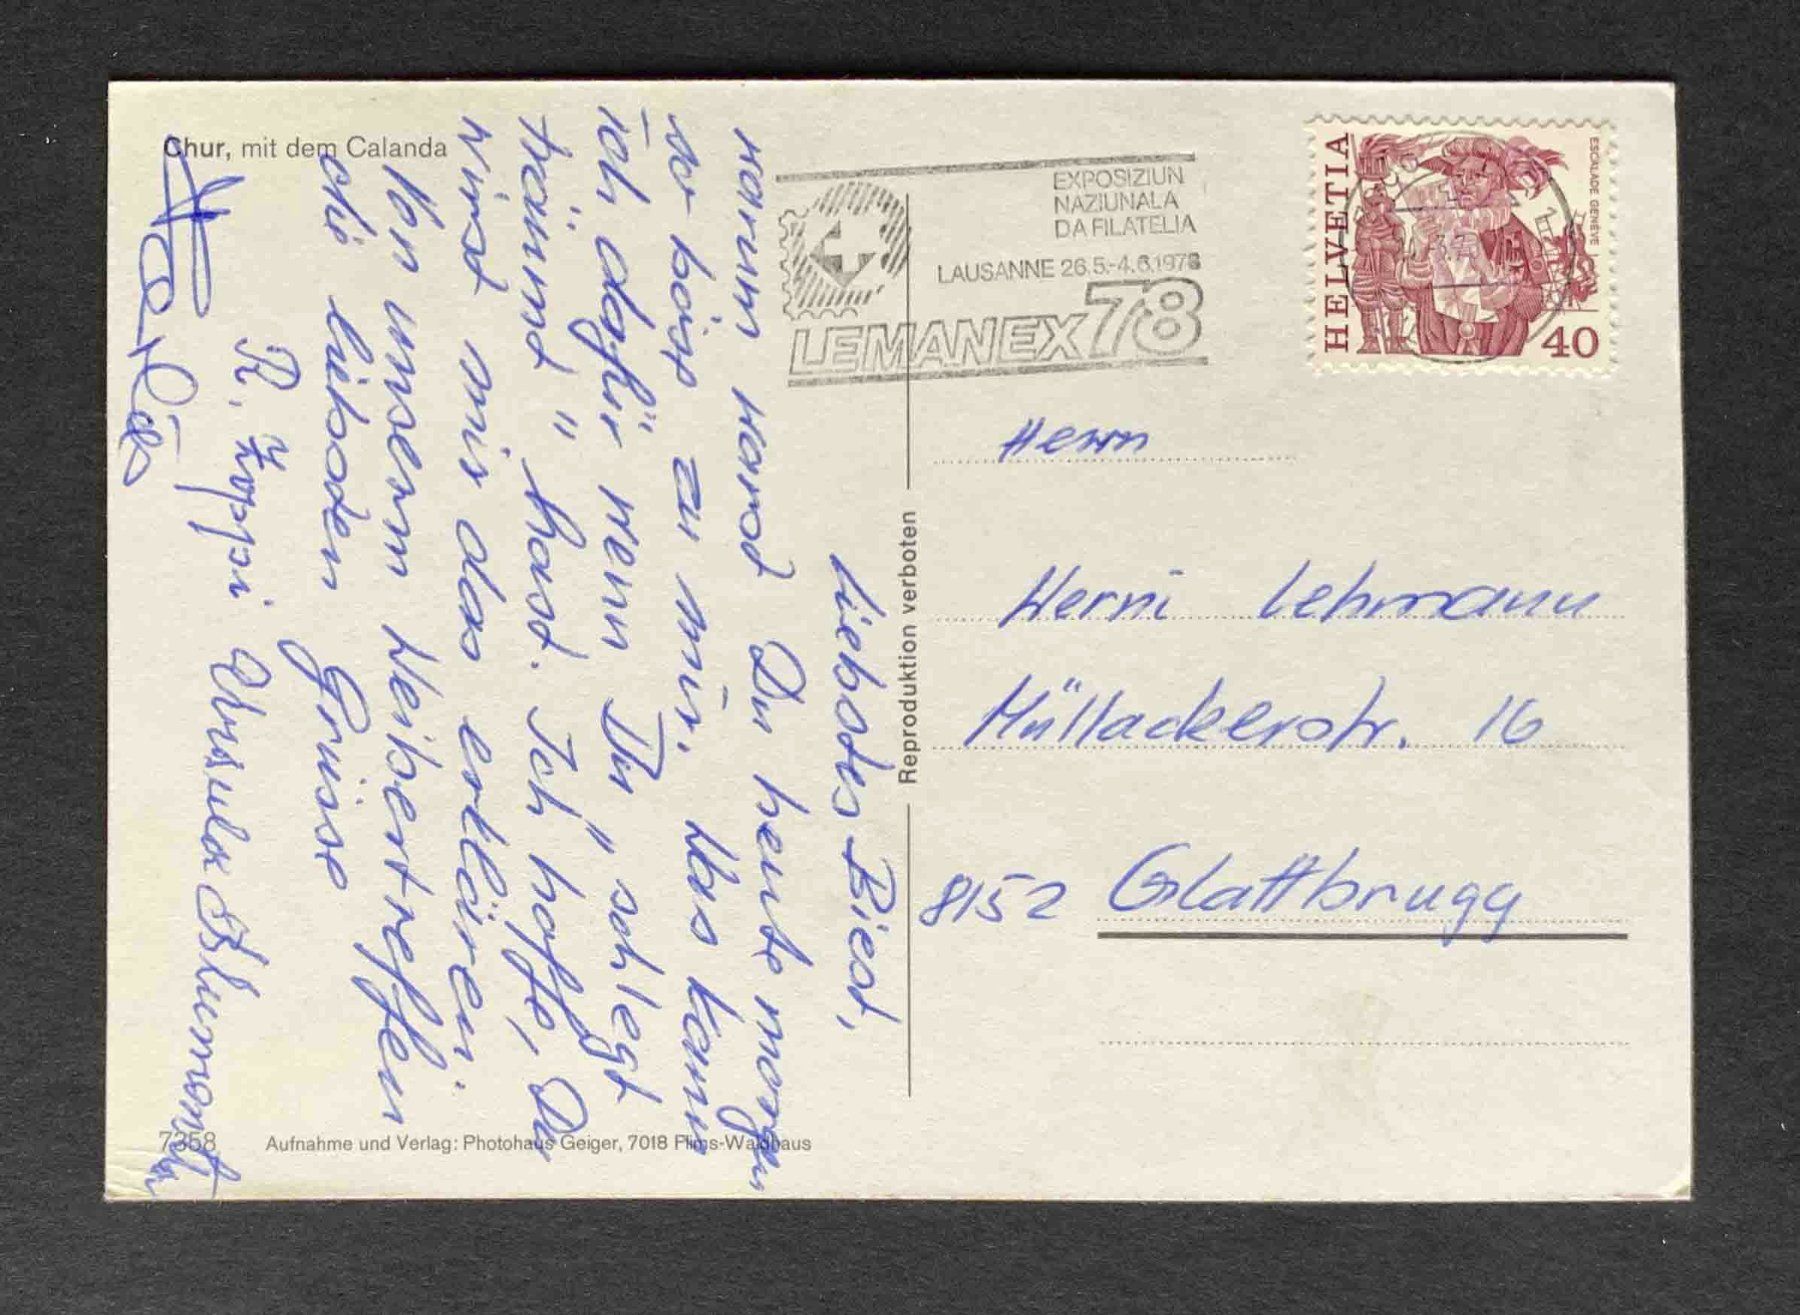 Chur, mit dem Calanda
EXPOSIZIUN
NAZIUNALA
DA FILATELIA
LAUSANNE 26.5.-4.6.1978
LEMANEX 78
HELVETIA
ESCALADE GENÈVE
40
Liebstes Biest,
warum warst Du heute morgen
so bös zu mir. Was kann
ich dafür wenn Du "schlegt
träumt" hast. Ich hoffe, Du
wirst mir das erklären.
Von unserm Weibertreffen
die liebsten Grüsse
R. Zoppi Ursula
Reproduktion verboten
Herrn
Werni Lehmann
Müllackerstr. 16
8152 Glattbrugg
7358
Aufnahme und Verlag: Photohaus Geiger, 7018 Flims-Waldhaus